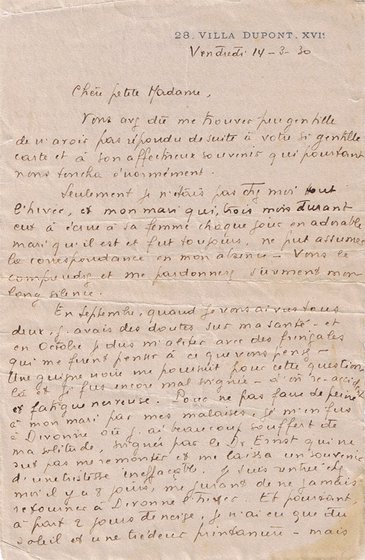 28, VILLA DUPONT. XVIe
Vendredi 14-3-30
Chère petite Madame,
Vous avez dû me trouver peu gentille
de n'avoir pas répondu de suite à votre si gentille
carte et à son affectueux souvenir qui pourtant
nous toucha énormément.
Seulement je n'étais pas chez moi tout
l'hiver, et mon mari qui, trois mois durant
eut à écrire à sa femme chaque jour en adorable
mari qu'il est et fut toujours, ne put assumer
la correspondance en mon absence - Vous le
comprendrez et me pardonnerez sûrement mon
long silence.
En Septembre, quand je vous ai vus tous
deux, j'avais des doutes sur ma santé - et
en Octobre je dus m'aliter avec des
qui me firent penser à ce que vous pensez -
Une guigne noire me poursuit pour cette question
là et je fus encore mal soignée - d'où
et fatigue nerveuse. Pour ne pas faire de peine
à mon mari par mes malaises, je m'en fus
à Divonne où j'ai beaucoup souffert de
ma solitude, soignée par le Dr Ernst qui ne
sut pas me remonter et me laissa un souvenir
d'une tristesse ineffaçable. Je suis rentrée chez
moi il y a 8 jours, me jurant de ne jamais
retourner à Divonne l'hiver. Et pourtant,
à part 2 jours de neige, je n'ai eu que du
soleil et une tiédeur printanière - mais